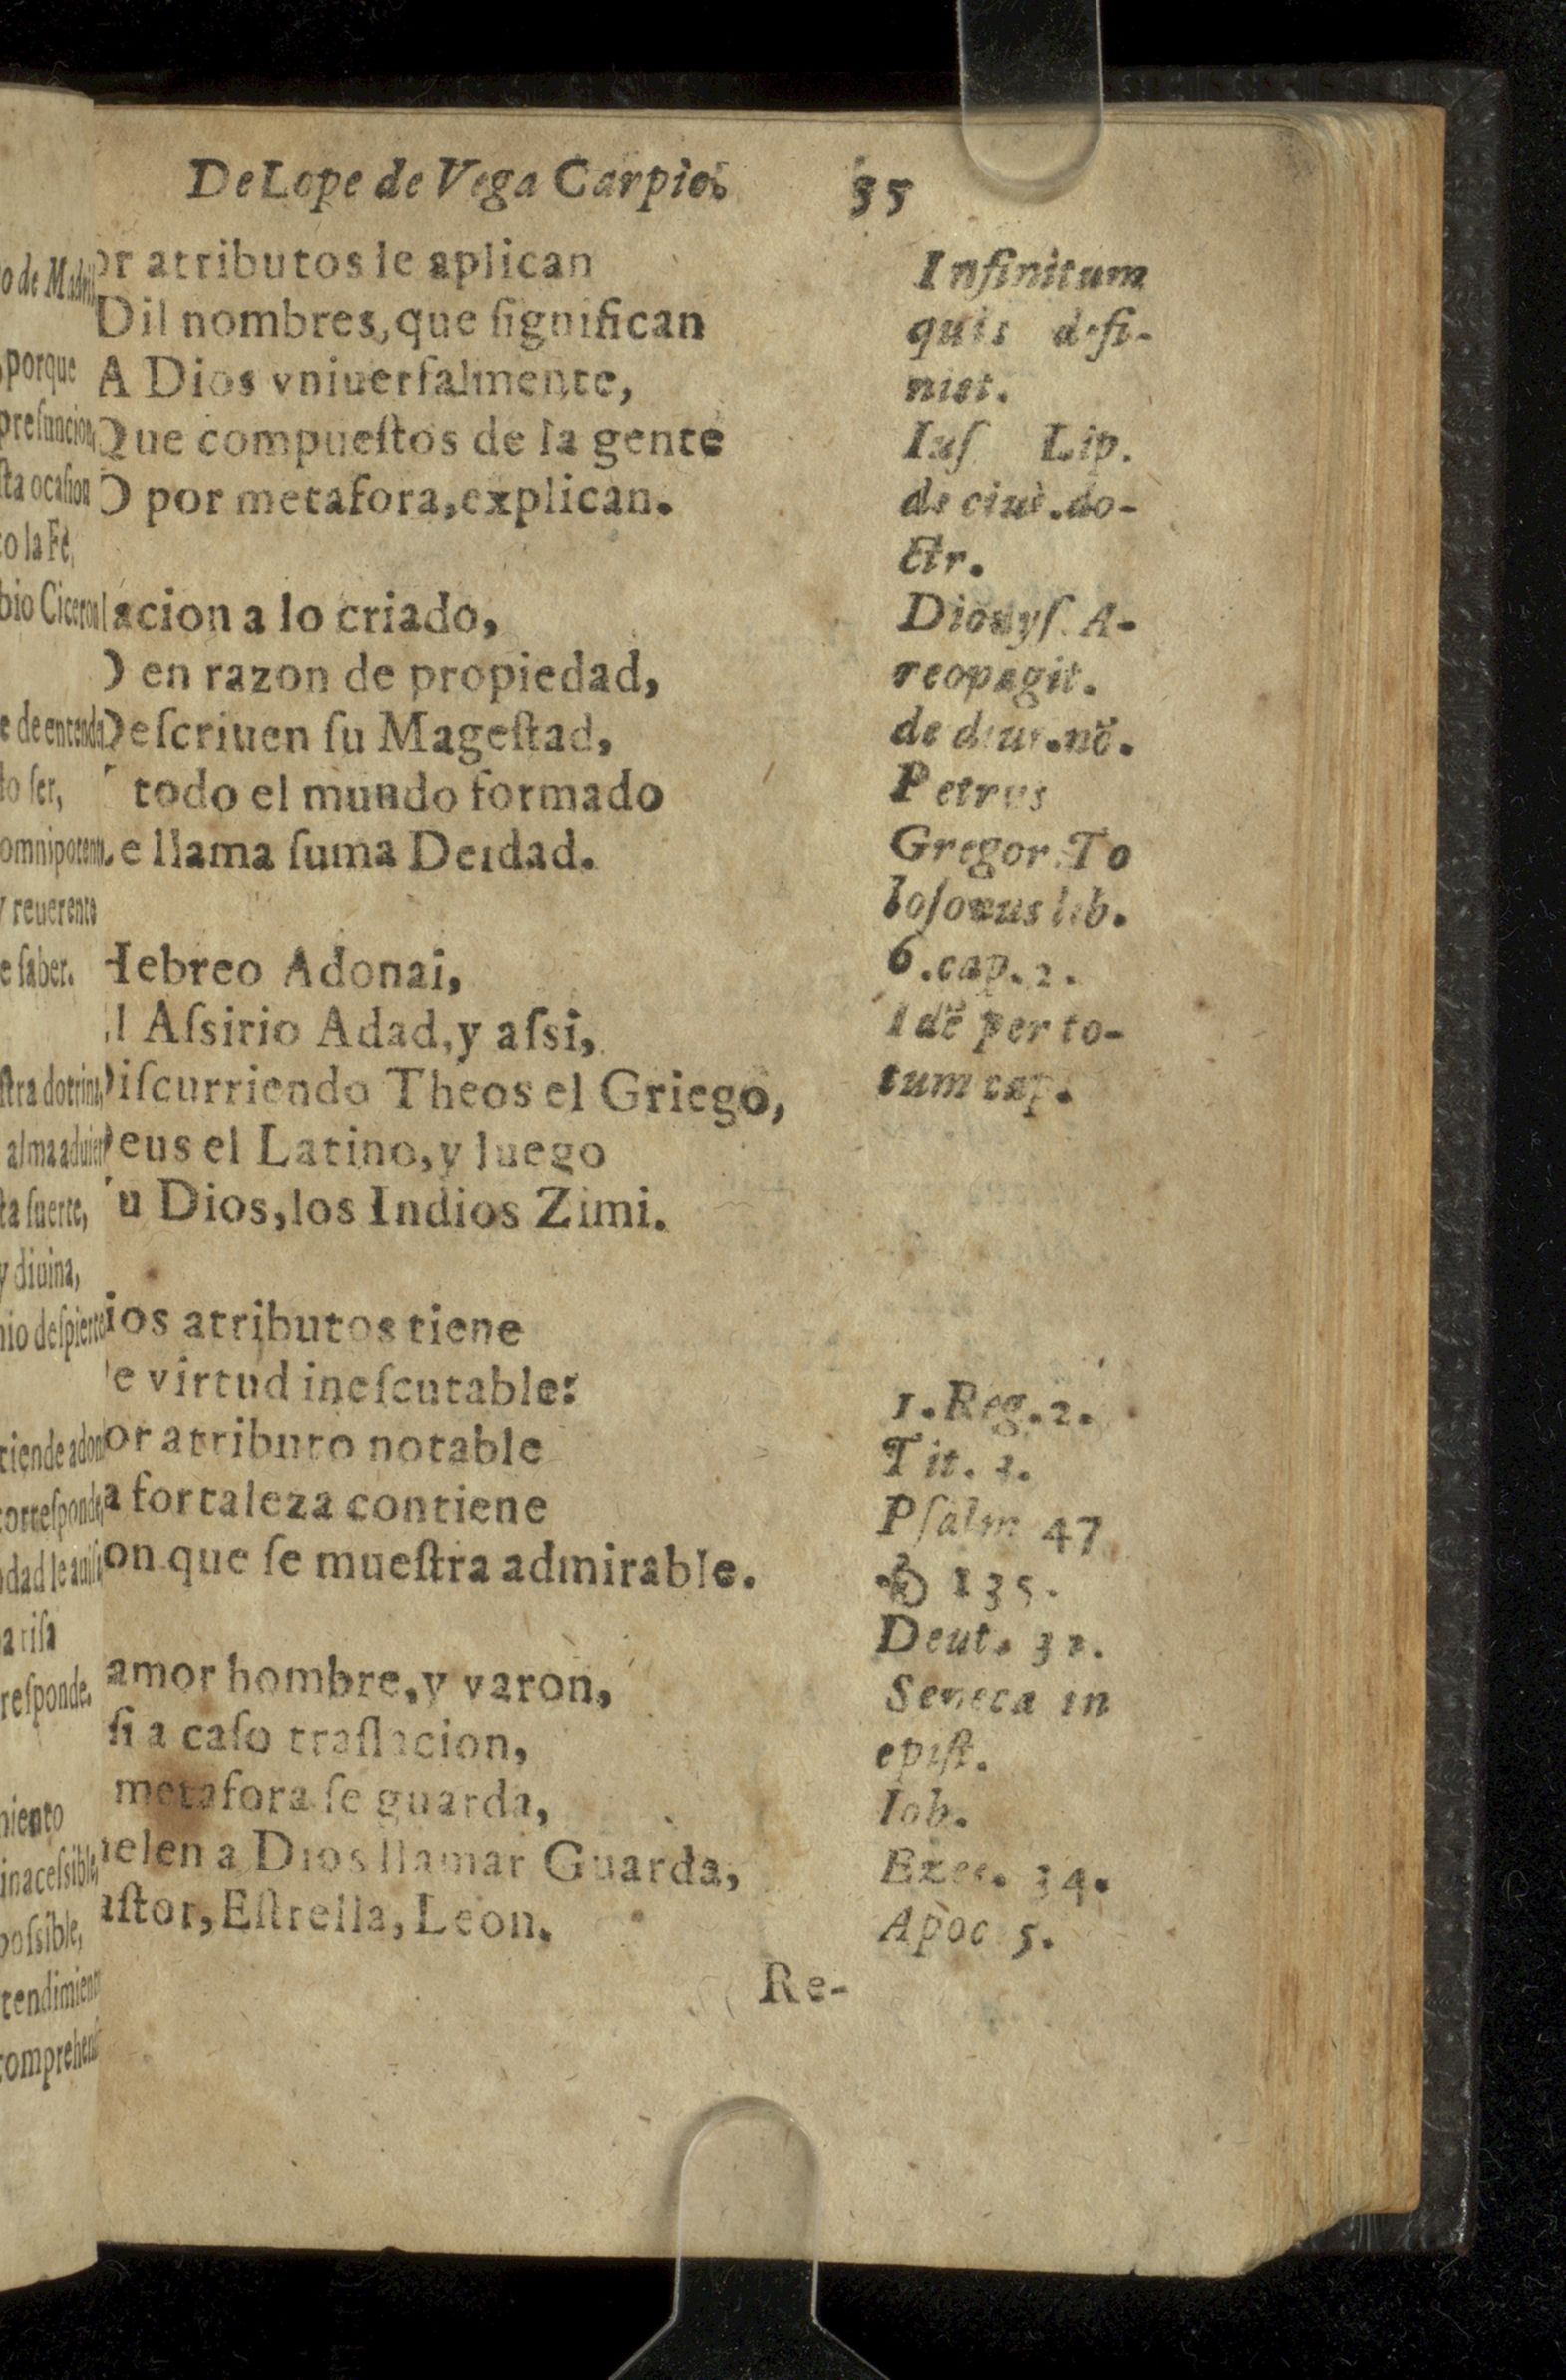 De Lope de Vega Carpio.
35
or atributos le aplican
Dil nombres, que ſignifican
A Dios vniuerſalmente,
Que compueſtos de la gente
O por metafora, explican.
lacion a lo criado,
O en razon de propiedad,
Deſcriuen ſu Mageſtad,
todo el mundo formado
e llama ſuma Deidad.
Hebreo Adonai,
l Aſsirio Adad, y aſsi,
Diſcurriendo Theos el Griego,
eus el Latino, y luego
u Dios, los Indios Zimi.
ios atributos tiene
e virtud ineſcutable:
or atributo notable
a fortaleza contiene
on que ſe mueſtra admirable.
amor hombre, y varon,
ſi a caſo traſlacion,
metafora ſe guarda,
uelen a Dios llamar Guarda,
aſtor, Eſtrella, Leon.
Re-
Infinitum
quis defi-
niet.
Iuſ Lip.
de ciui. do-
ctr.
Dionyſ. A-
reopagit.
de diui. nõ.
Petrus
Gregor. To
loſonus lib.
6. cap. 2.
Idẽ per to-
tum cap.
1. Reg. 2.
Tit.
Pſalm 47
& 135.
Deut. 32.
Seneca in
epiſt.
Iob.
Ezec. 34.
Apoc 5.
o de Madrid
porque
preſuncion,
ſta ocaſion
to la Fè,
bio Ciceron
e de entenda
do ſer,
omnipotente
y reuerente
e ſaber.
ſtra dotrina,
alma aduier
ta ſuerte,
y diuina,
nio deſpierte
tiende adon
correſponde,
dad le auiſ
a riſa
reſponde.
miento
inaceſsible,
poſsible,
tendimiento
comprehen